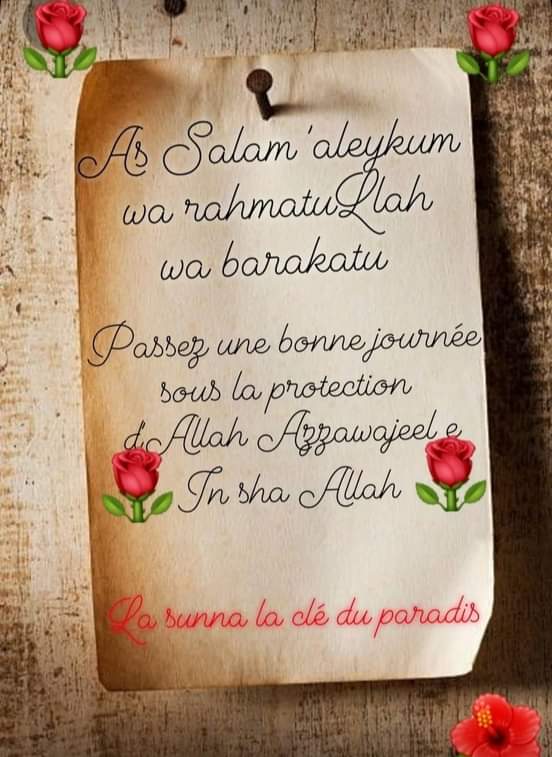 As Salam'aleykum
wa rahmatuLlah
wa barakatu
Passez une bonne journée
sous la protection
d'Allah Azzawajeel e
In sha Allah
La sunna la clé du paradis